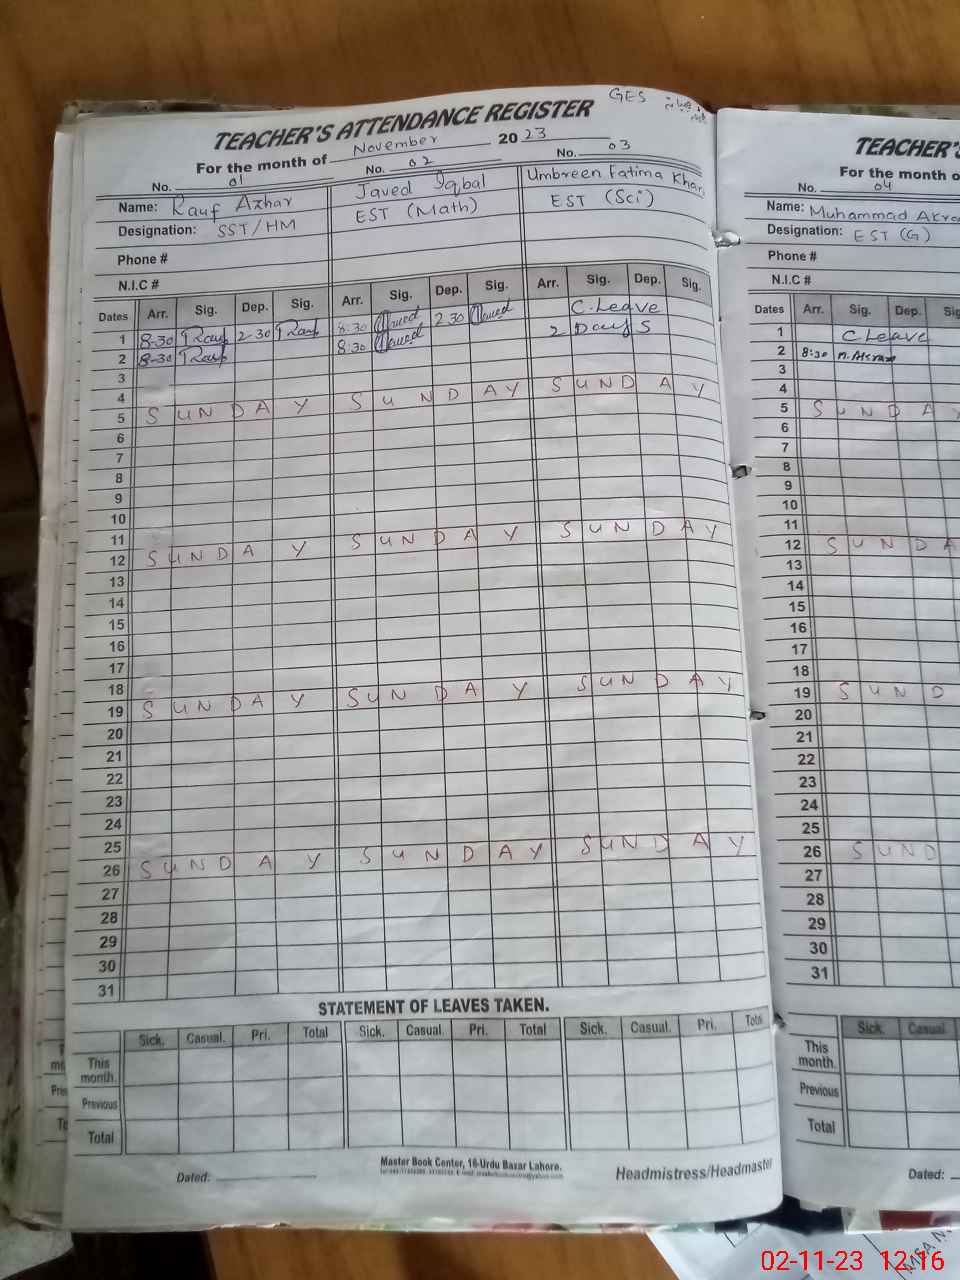 GES
TEACHER'S ATTENDANCE REGISTER
For the month of November 2023
No. 01 No. 02 No. 03
Name: Rauf Azhar Javed Iqbal Umbreen Fatima Khan
Designation: SST/HM EST (Math) EST (Sci)
Phone #
N.I.C #
Dates Arr. Sig. Dep. Sig. Arr. Sig. Dep. Sig. Arr. Sig. Dep. Sig.
1 8-30 Rauf 2-30 Rauf 8:30 Javed 2 30 Javed C.Leave
2 8-30 Rauf 8:30 Javed 2 Days
3
4
5 SUNDAY SUNDAY SUNDAY
6
7
8
9
10
11
12 SUNDAY SUNDAY SUNDAY
13
14
15
16
17
18
19 SUNDAY SUNDAY SUNDAY
20
21
22
23
24
25
26 SUNDAY SUNDAY SUNDAY
27
28
29
30
31
STATEMENT OF LEAVES TAKEN.
Sick. Casual. Pri. Total Sick. Casual. Pri. Total Sick. Casual. Pri. Total
This month.
Previous
Total
Master Book Center, 16-Urdu Bazar Lahore.
Dated: Headmistress/Headmaster
TEACHER'S
For the month o
No. 04
Name: Muhammad Akra
Designation: EST (G)
Phone #
N.I.C #
Dates Arr. Sig. Dep. Sig
1 C Leave
2 8:30 M. Akram
3
4
5 SUNDAY
6
7
8
9
10
11
12 SUNDA
13
14
15
16
17
18
19 SUND
20
21
22
23
24
25
26 SUND
27
28
29
30
31
Sick. Casual.
This month.
Previous
Total
Dated:
02-11-23 12:16